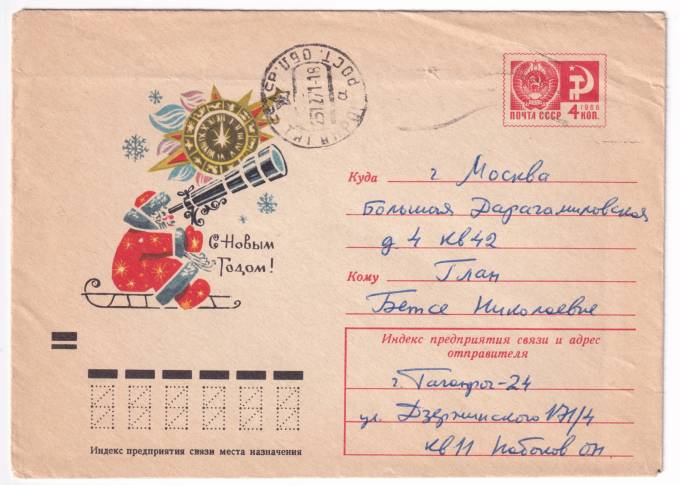 ПОЧТА СССР
4
1966
КОП.
РОСТ. ОБЛ.
251271-18
а
С Новым
Годом!
Куда г Москва
Большая Дарагамиловская
д. 4 кв 42
Кому Глан
Бетсе Николаевне
Индекс предприятия связи и адрес
отправителя
г. Таганрог-24
ул. Дзержинского 171/4
кв 11
Индекс предприятия связи места назначения